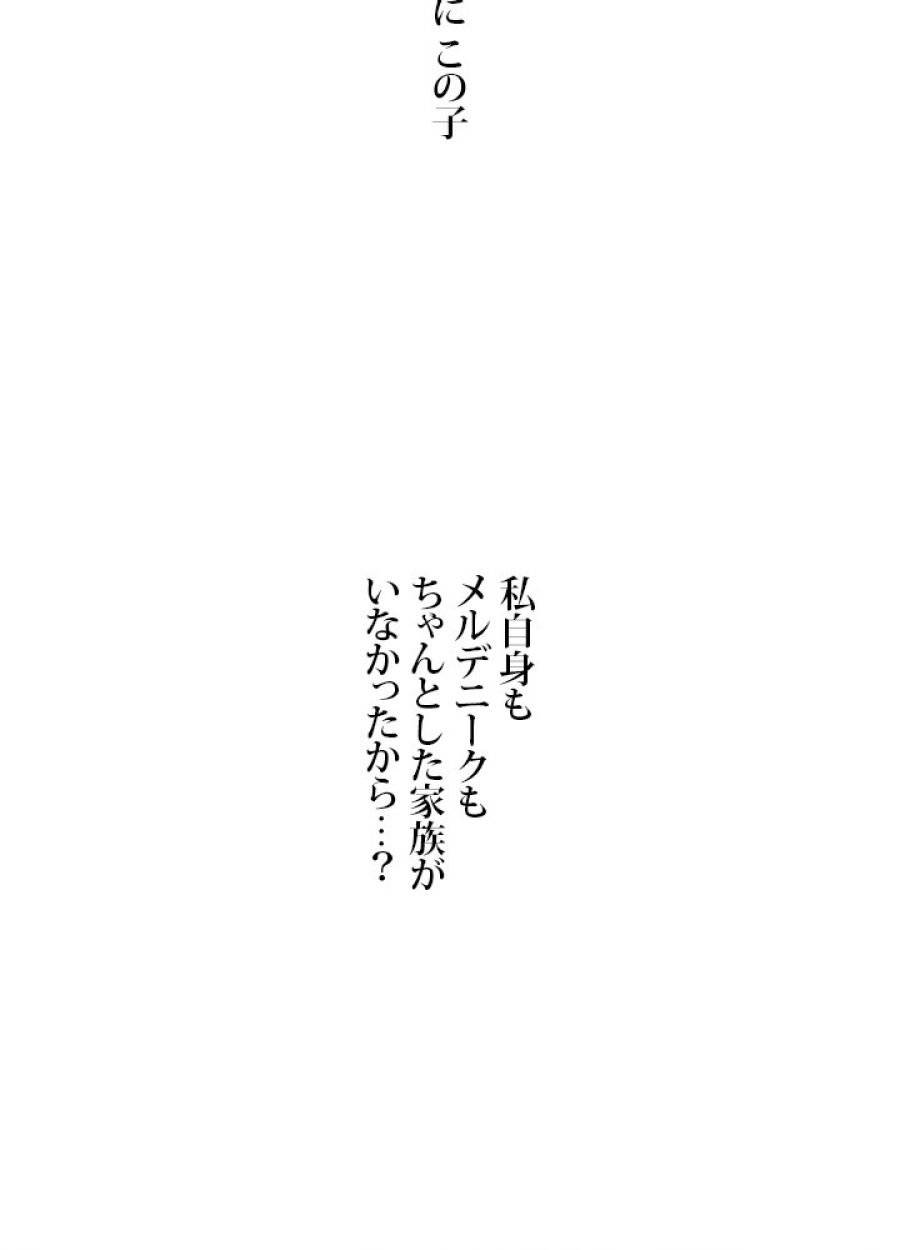 に この子
私自身も
メルデニークも
ちゃんとした家族が
いなかったから…?